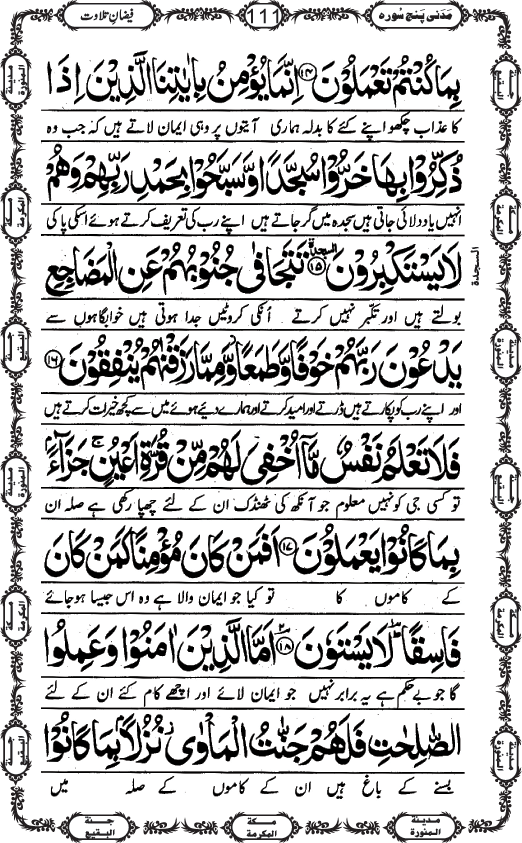 مَدَنی پنج سُورہ
111
فیضانِ تلاوت
بِمَا كُنْتُمْ تَعْمَلُوْنَ ﴿۱۴﴾ اِنَّمَا یُؤْمِنُ بِاٰیٰتِنَا الَّذِیْنَ اِذَا
کا عذاب چکھو اپنے کئے کا بدلہ ہماری آیتوں پر وہی ایمان لاتے ہیں کہ جب وہ
ذُكِّرُوْا بِهَا خَرُّوْا سُجَّدًا وَّ سَبَّحُوْا بِحَمْدِ رَبِّهِمْ وَ هُمْ
انہیں یاد دلائی جاتی ہیں سجدہ میں گر جاتے ہیں اپنے رب کی تعریف کرتے ہوئے اسکی پاکی
لَا یَسْتَكْبِرُوْنَ ﴿۱۵﴾ تَتَجَافٰى جُنُوْبُهُمْ عَنِ الْمَضَاجِعِ
السجدة
بولتے ہیں اور تکبّر نہیں کرتے اُنکی کروٹیں جدا ہوتی ہیں خوابگاہوں سے
یَدْعُوْنَ رَبَّهُمْ خَوْفًا وَّ طَمَعًا وَّ مِمَّا رَزَقْنٰهُمْ یُنْفِقُوْنَ ﴿۱۶﴾
اور اپنے رب کو پکارتے ہیں ڈرتے اور امید کرتے اور ہمارے دیے ہوئے میں سے کچھ خیرات کرتے ہیں
فَلَا تَعْلَمُ نَفْسٌ مَّاۤ اُخْفِیَ لَهُمْ مِّنْ قُرَّةِ اَعْیُنٍ ۚ جَزَآءًۢ
تو کسی جی کو نہیں معلوم جو آنکھ کی ٹھنڈک ان کے لئے چھپا رکھی ہے صلہ ان
بِمَا كَانُوْا یَعْمَلُوْنَ ﴿۱۷﴾ اَفَمَنْ كَانَ مُؤْمِنًا كَمَنْ كَانَ
کے کاموں کا تو کیا جو ایمان والا ہے وہ اس جیسا ہوجائے
فَاسِقًا ؕ لَا یَسْتَوٗنَ ﴿۱۸﴾ اَمَّا الَّذِیْنَ اٰمَنُوْا وَ عَمِلُوا
گا جو بے حکم ہے یہ برابر نہیں جو ایمان لائے اور اچھے کام کئے ان کے لئے
الصّٰلِحٰتِ فَلَهُمْ جَنّٰتُ الْمَاْوٰى ؗ نُزُلًۢا بِمَا كَانُوْا
بسنے کے باغ ہیں ان کے کاموں کے صلہ میں
مدینة المنورة
مکة المکرمة
جنة البقیع